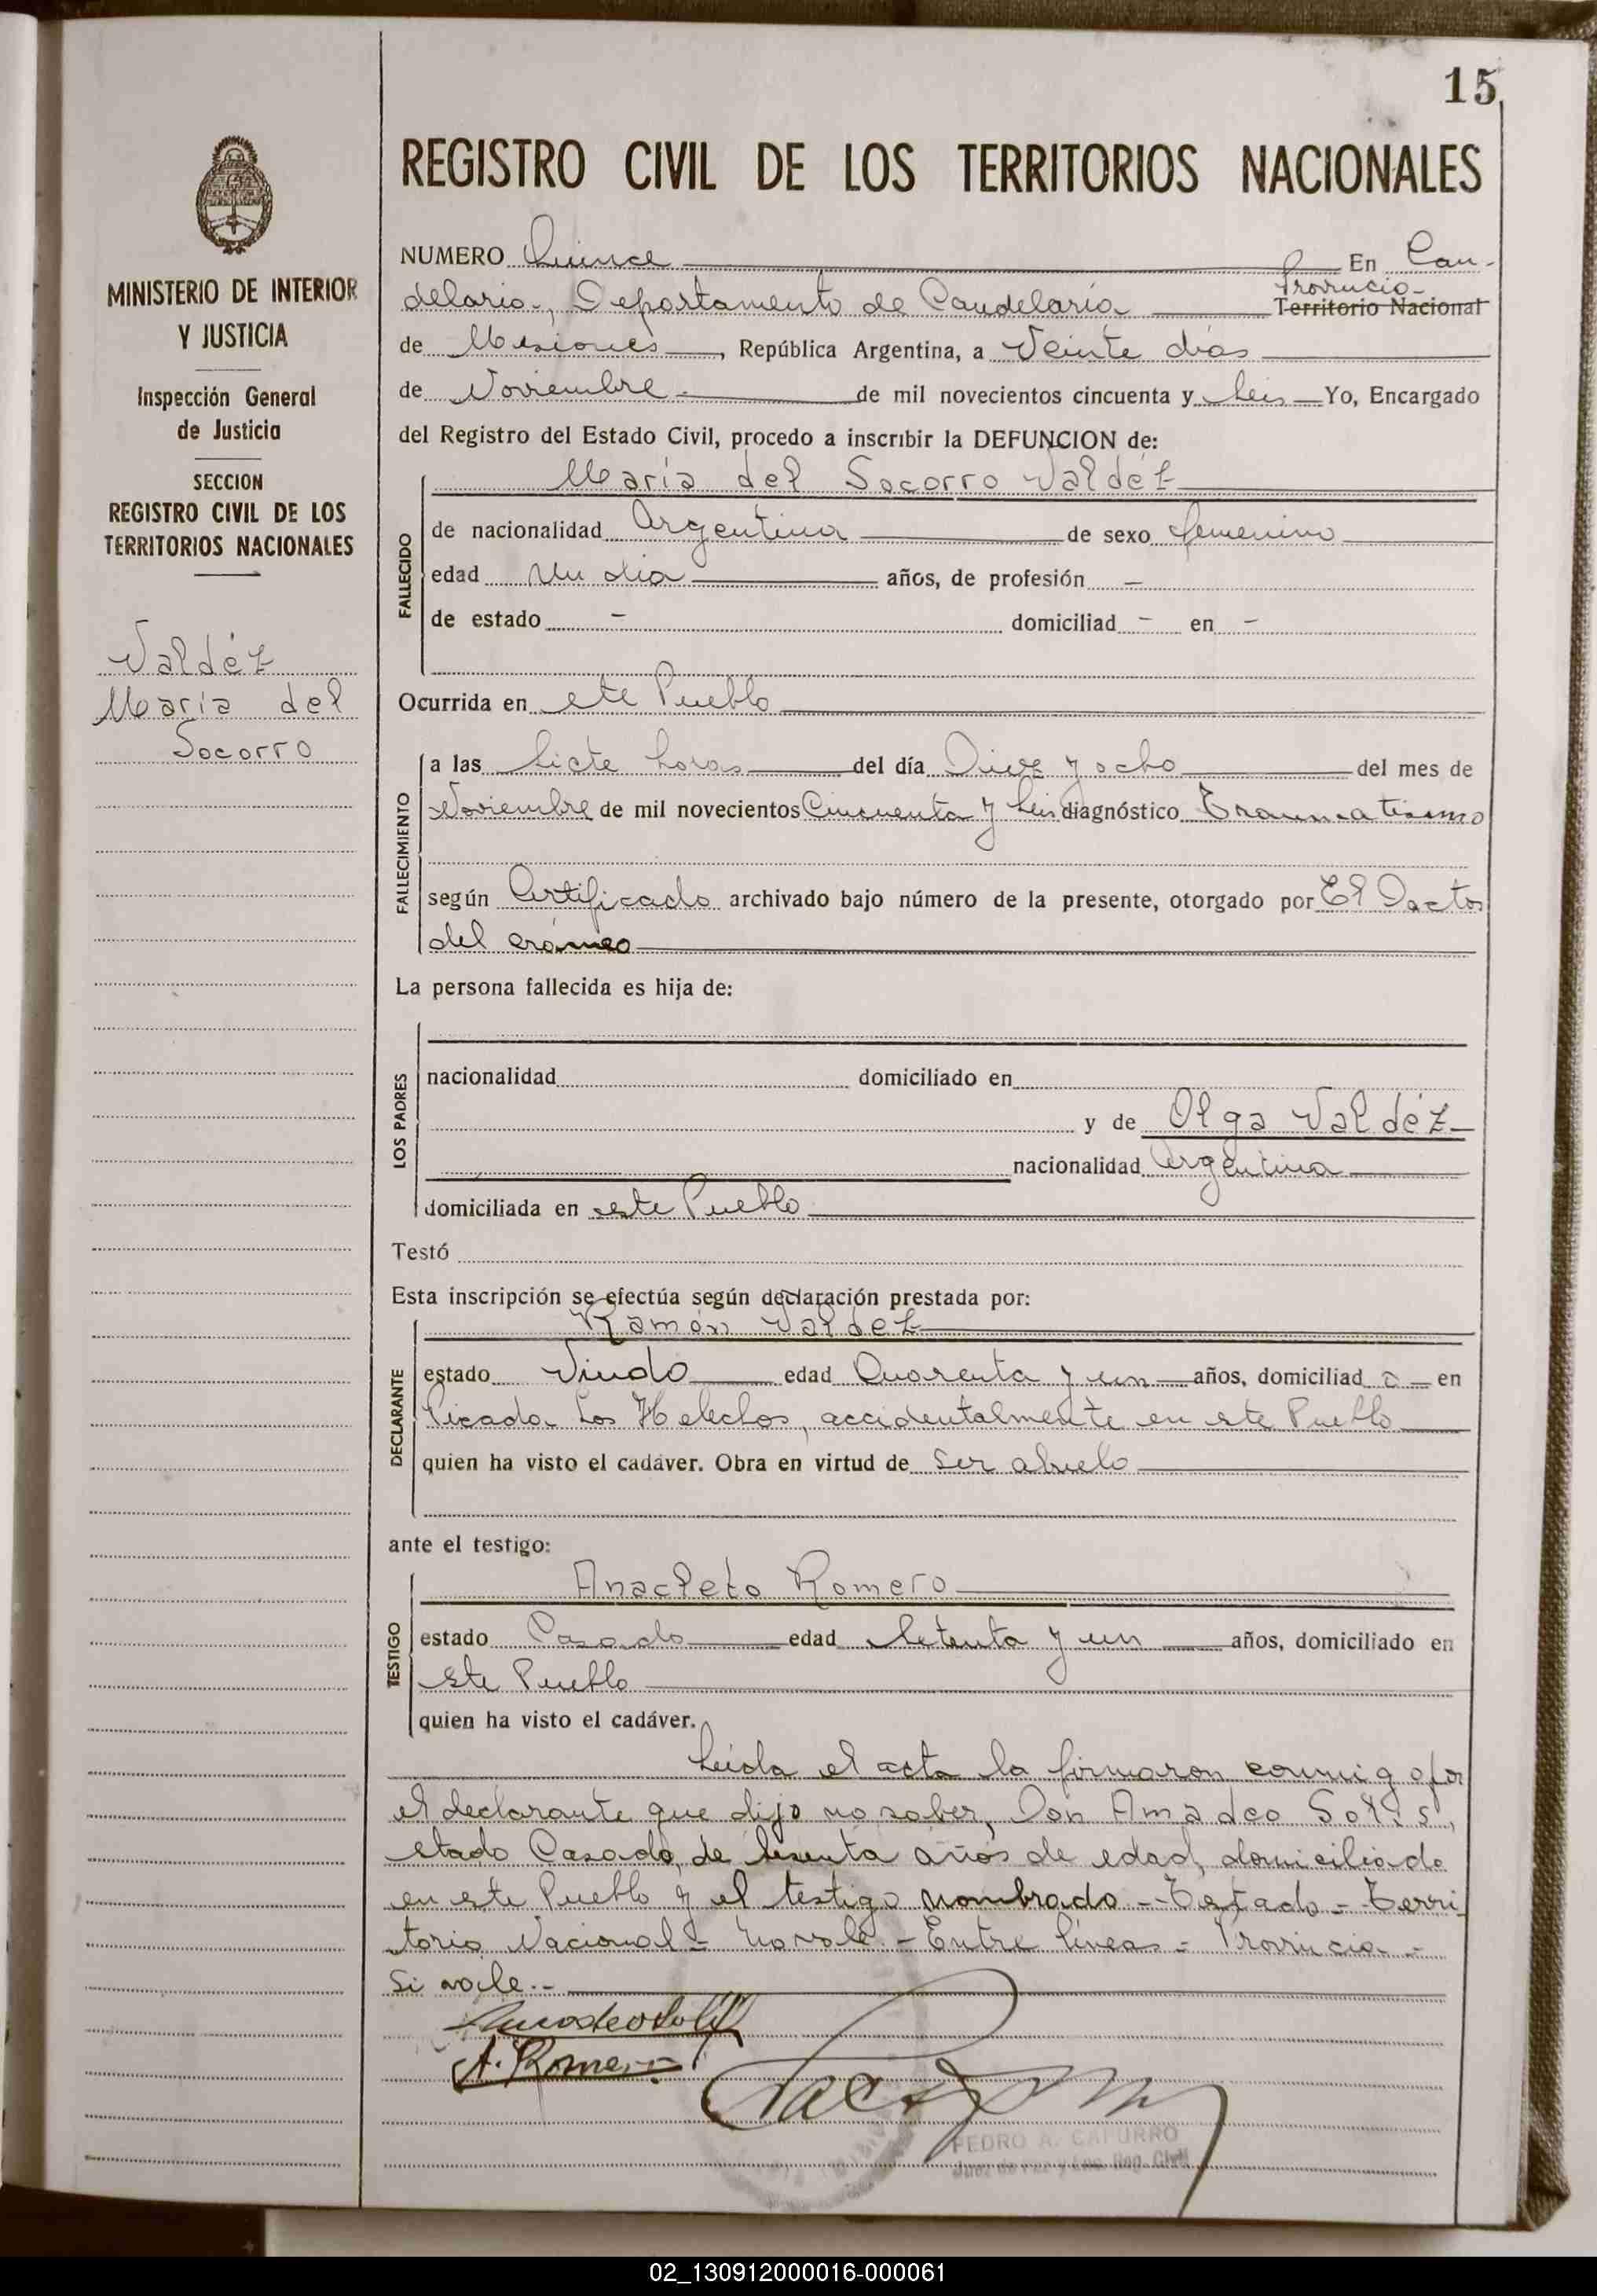 15
REGISTRO CIVIL DE LOS TERRITORIOS NACIONALES
MINISTERIO DE INTERIOR
Y JUSTICIA
Inspección General
de Justicia
SECCION
REGISTRO CIVIL DE LOS
TERRITORIOS NACIONALES
Valdéz
María del
Socorro
NUMERO Quince En Can-
Provincia
delaria, Departamento de Candelaria Territorio Nacional
de Misiones, República Argentina, a Veinte días
de Noviembre de mil novecientos cincuenta y Seis Yo, Encargado
del Registro del Estado Civil, procedo a inscribir la DEFUNCION de:
María del Socorro Valdéz
FALLECIDO
de nacionalidad Argentina de sexo femenino
edad Un día años, de profesión -
de estado - domiciliad - en -
Ocurrida en este Pueblo
FALLECIMIENTO
a las Siete horas del día Diez y ocho del mes de
Noviembre de mil novecientos Cincuenta y Seis diagnóstico Traumatismo
según Certificado archivado bajo número de la presente, otorgado por El Doctor
del cráneo
La persona fallecida es hija de:
LOS PADRES
nacionalidad domiciliado en
y de Olga Valdéz
nacionalidad Argentina
domiciliada en este Pueblo
Testó
Esta inscripción se efectúa según declaración prestada por:
Ramón Valdez
DECLARANTE
estado Viudo edad Cuarenta y un años, domiciliad o en
Picada Los Helechos, accidentalmente en este Pueblo
quien ha visto el cadáver. Obra en virtud de Ser abuelo
ante el testigo:
Anacleto Romero
TESTIGO
estado Casado edad Setenta y un años, domiciliado en
este Pueblo
quien ha visto el cadáver.
Leida el acta la firmaron conmigo por
el declarante que dijo no saber, Don Amadeo Solis,
estado Casado, de Sesenta años de edad, domiciliado
en este Pueblo y el testigo nombrado - Testado - Terri
torio Nacional - No vale - Entre líneas - Provincia -
Si vale.-
Amadeo Solis
A. Romero
PEDRO A. CAPURRO
Juez de Paz y Enc. Reg. Civil
02_130912000016-000061